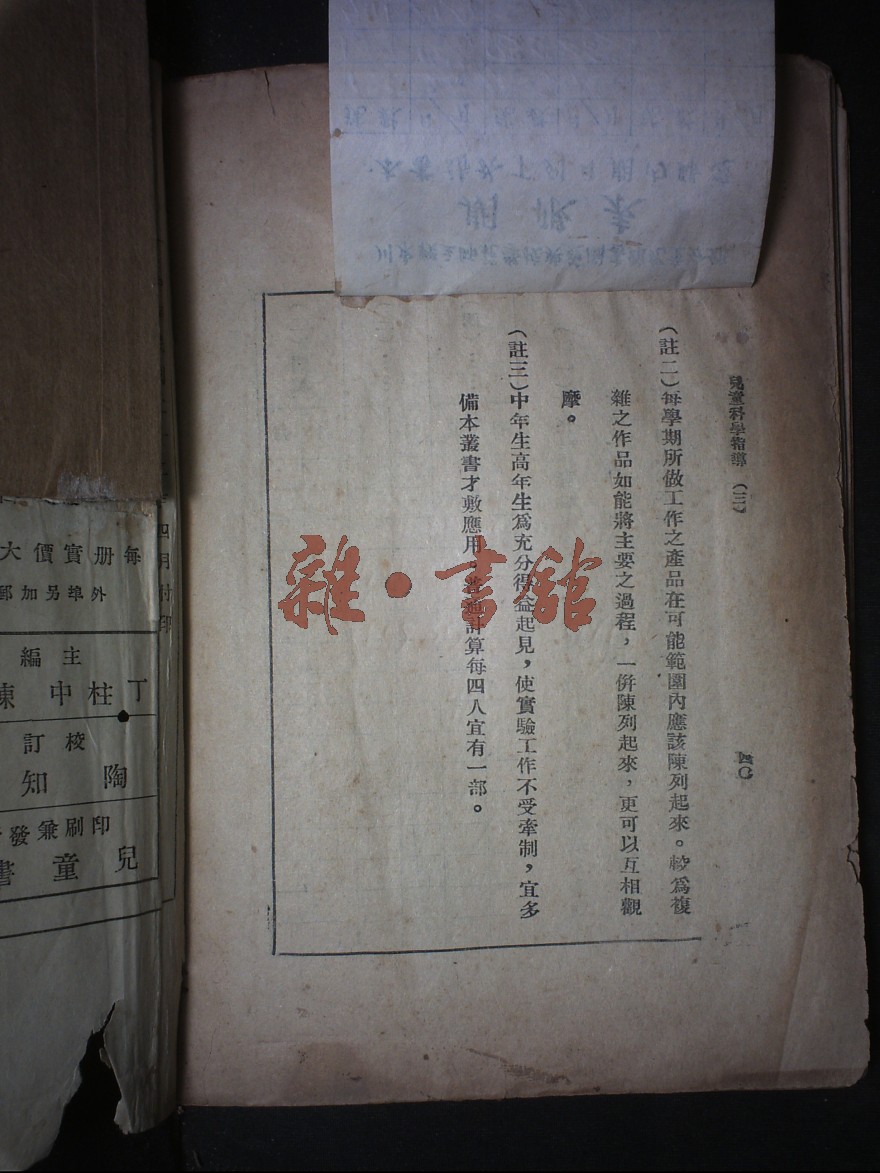 兒童科學指導 (三)
四〇
(註二)每學期所做工作之產品在可能範圍內應該陳列起來。較爲複
雜之作品如能將主要之過程,一倂陳列起來,更可以互相觀
摩。
(註三)中年生高年生爲充分得益起見,使實驗工作不受牽制,宜多
備本叢書才敷應用,普通計算每四人宜有一部。
雜·書館
期限表
本書請於下列日期內歸還
四月付印
每册實價大
外埠另加郵
主編
丁柱中 陳
校訂
陶知
印刷兼發
兒童書